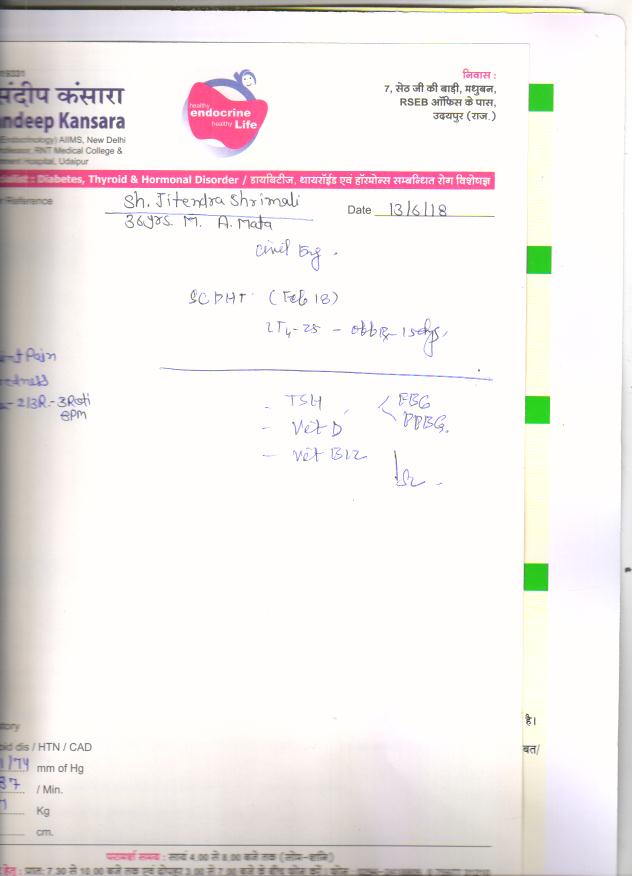 संदीप कंसारा
ndeep Kansara
Endocrinology) AIIMS, New Delhi
RNT Medical College &
Hospital, Udaipur
healthy
endocrine
healthy Life
निवास :
7, सेठ जी की बाड़ी, मधुबन,
RSEB ऑफिस के पास,
उदयपुर (राज.)
ialist : Diabetes, Thyroid & Hormonal Disorder / डायबिटीज, थायरॉईड एवं हॉरमोन्स सम्बन्धित रोग विशेषज्ञ
Reference
Sh. Jitendra Shrimali
Date 13/6/18
36yrs. M. A. Mata
Civil Eng.
SCDHT (Feb 18)
LT4-25
Pain
- TSH
FBG
PPBG.
- Vit D
- Vit B12
8PM
tory
oid dis / HTN / CAD
/74 mm of Hg
87 / Min.
Kg
cm.
है।
परामर्श समय : सायं 4.00 से 8.00 बजे तक (सोम-शनि)
हेतु : प्रात: 7.30 से 10.00 बजे तक एवं दोपहर 3.00 से 7.00 बजे के बीच फोन करें।